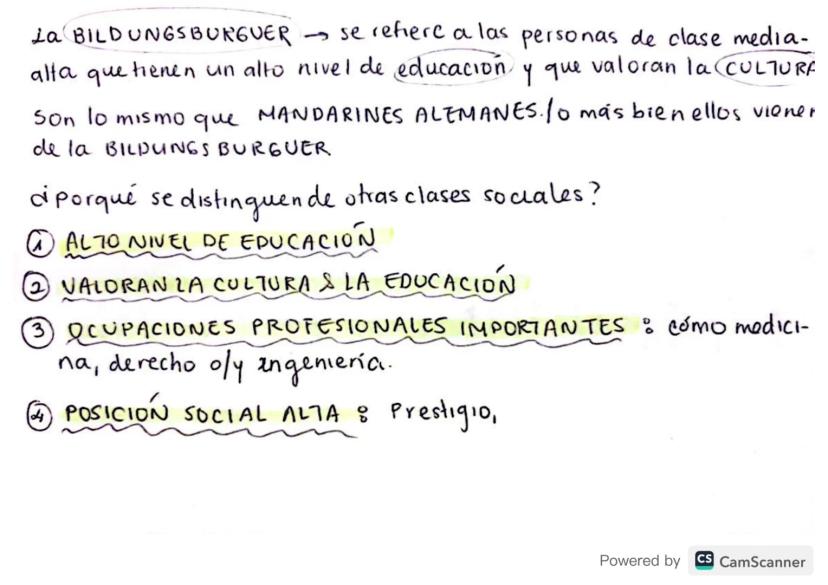 La BILDUNGSBURGUER → se refiere a las personas de clase media-
alta que tienen un alto nivel de educación y que valoran la CULTURA
Son lo mismo que MANDARINES ALEMANES./o más bien ellos vienen
de la BILDUNGSBURGUER
¿Porqué se distinguen de otras clases sociales?
① ALTO NIVEL DE EDUCACIÓN
② VALORAN LA CULTURA & LA EDUCACIÓN
③ OCUPACIONES PROFESIONALES IMPORTANTES: cómo medici-
na, derecho o/y ingeniería.
④ POSICIÓN SOCIAL ALTA: Prestigio,
Powered by CS CamScanner